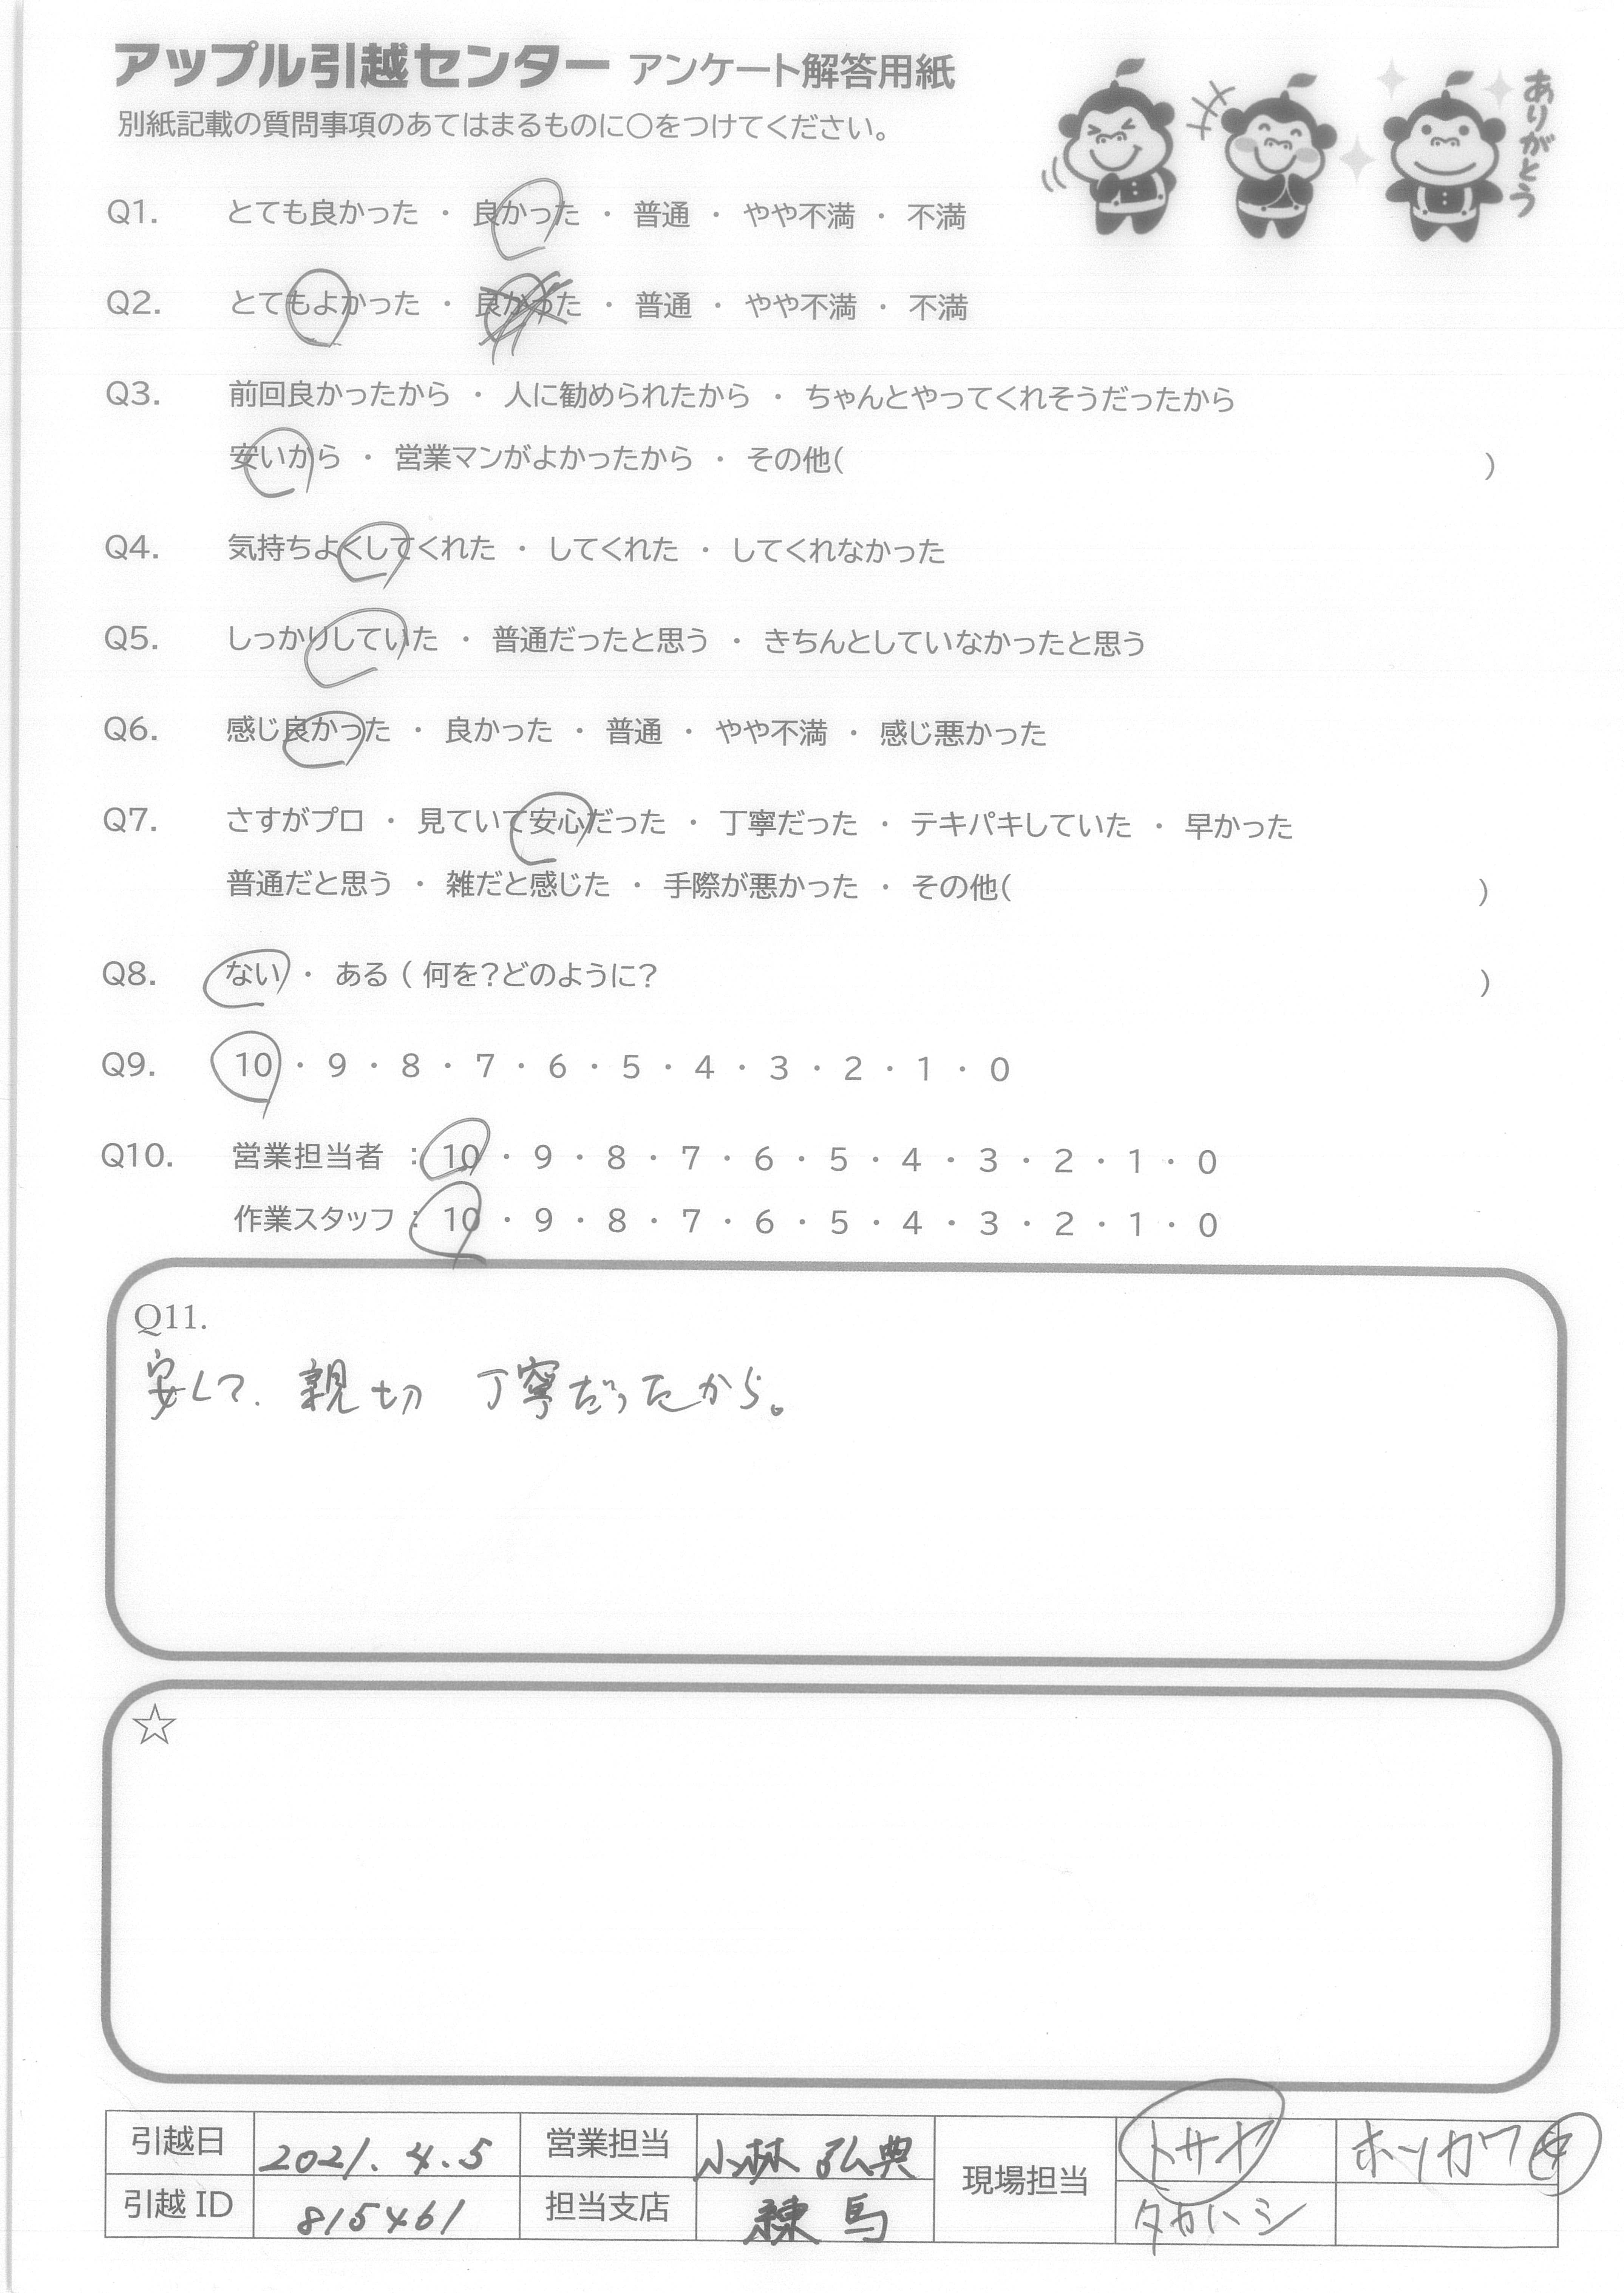 アップル引越センター アンケート解答用紙
ありがとう
別紙記載の質問事項のあてはまるものに○をつけてください。
Q1. とても良かった ・ 良かった ・ 普通 ・ やや不満 ・ 不満
Q2. とてもよかった ・ 良かった ・ 普通 ・ やや不満 ・ 不満
Q3. 前回良かったから ・ 人に勧められたから ・ ちゃんとやってくれそうだったから
安いから ・ 営業マンがよかったから ・ その他( )
Q4. 気持ちよくしてくれた ・ してくれた ・ してくれなかった
Q5. しっかりしていた ・ 普通だったと思う ・ きちんとしていなかったと思う
Q6. 感じ良かった ・ 良かった ・ 普通 ・ やや不満 ・ 感じ悪かった
Q7. さすがプロ ・ 見ていて安心だった ・ 丁寧だった ・ テキパキしていた ・ 早かった
普通だと思う ・ 雑だと感じた ・ 手際が悪かった ・ その他( )
Q8. ない ・ ある ( 何を?どのように? )
Q9. 10 ・ 9 ・ 8 ・ 7 ・ 6 ・ 5 ・ 4 ・ 3 ・ 2 ・ 1 ・ 0
Q10. 営業担当者 : 10 ・ 9 ・ 8 ・ 7 ・ 6 ・ 5 ・ 4 ・ 3 ・ 2 ・ 1 ・ 0
作業スタッフ : 10 ・ 9 ・ 8 ・ 7 ・ 6 ・ 5 ・ 4 ・ 3 ・ 2 ・ 1 ・ 0
Q11.
安くて. 親切 丁寧だったから。
☆
引越日 2021.4.5 営業担当 小林 弘典 現場担当 トサヤ ホンカワ
引越 ID 815461 担当支店 練馬 タカハシ